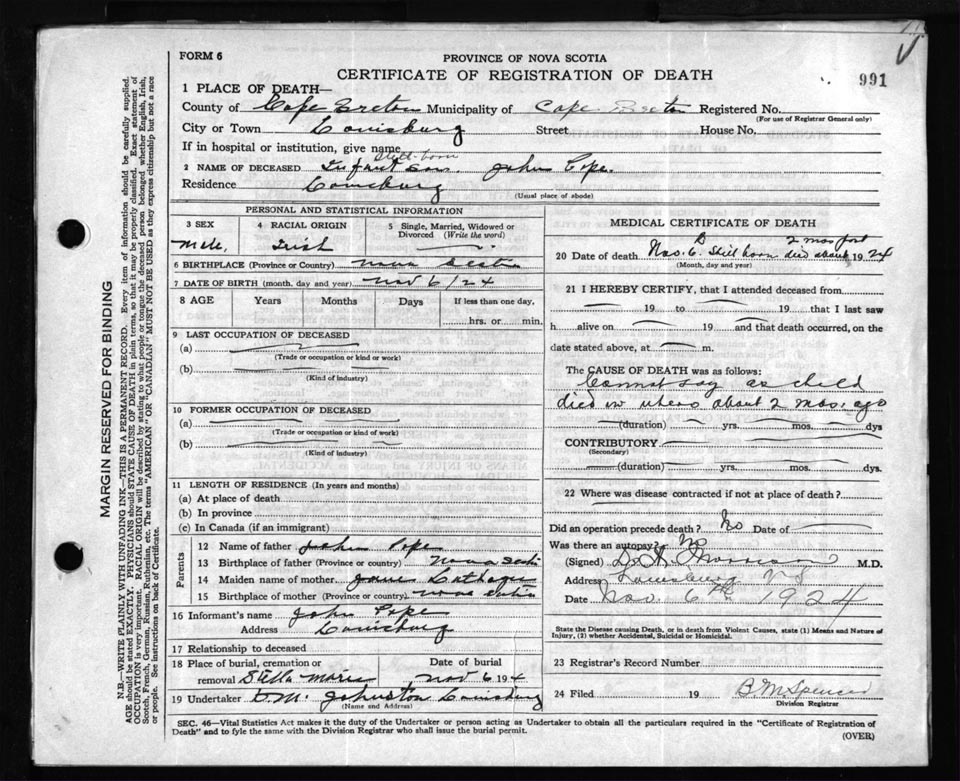 FORM 6
PROVINCE OF NOVA SCOTIA
CERTIFICATE OF REGISTRATION OF DEATH
991
1 PLACE OF DEATH—
County of Cape Breton Municipality of Cape Breton Registered No.
(For use of Registrar General only)
City or Town Louisburg Street House No.
If in hospital or institution, give name
Still-born
2 NAME OF DECEASED Infant Son. John Pope.
Residence Louisburg
(Usual place of abode)
PERSONAL AND STATISTICAL INFORMATION
3 SEX 4 RACIAL ORIGIN 5 Single, Married, Widowed or Divorced (Write the word)
Male, Irish
6 BIRTHPLACE (Province or Country) Nova Scotia
7 DATE OF BIRTH (month, day and year) Nov 6/24
8 AGE Years Months Days If less than one day,
hrs. or min.
9 LAST OCCUPATION OF DECEASED
(a)
(Trade or occupation or kind or work)
(b)
(Kind of industry)
10 FORMER OCCUPATION OF DECEASED
(a)
(Trade or occupation or kind of work)
(b)
(Kind of industry)
11 LENGTH OF RESIDENCE (In years and months)
(a) At place of death
(b) In province
(c) In Canada (if an immigrant)
Parents
12 Name of father John Pope
13 Birthplace of father (Province or country) Nova Scotia
14 Maiden name of mother Jane
15 Birthplace of mother (Province or country) Nova Scotia
16 Informant's name John Pope
Address Louisburg
17 Relationship to deceased
18 Place of burial, cremation or removal Stella Maris Date of burial Nov 6 19 4
19 Undertaker D.M. Johnston Louisburg
(Name and Address)
MEDICAL CERTIFICATE OF DEATH
2 mos past
20 Date of death Nov. 6. Still born died about 1924
(Month, day and year)
21 I HEREBY CERTIFY, that I attended deceased from
19 to 19 that I last saw
h alive on 19 and that death occurred, on the
date stated above, at m.
The CAUSE OF DEATH was as follows:
Cannot say as child
died in utero about 2 mos. ago
(duration) yrs. mos. dys
CONTRIBUTORY
(Secondary)
(duration) yrs. mos. dys.
22 Where was disease contracted if not at place of death?
Did an operation precede death? No Date of
Was there an autopsy? No
(Signed) M.D.
Address Louisburg N S
Date Nov. 6th 1924
State the Disease causing Death, or in death from Violent Causes, state (1) Means and Nature of
Injury, (2) whether Accidental, Suicidal or Homicidal.
23 Registrar's Record Number
24 Filed 19 B M Spencer
Division Registrar
SEC. 46—Vital Statistics Act makes it the duty of the Undertaker or person acting as Undertaker to obtain all the particulars required in the "Certificate of Registration of
Death" and to fyle the same with the Division Registrar who shall issue the burial permit.
(OVER)
MARGIN RESERVED FOR BINDING
N.B.—WRITE PLAINLY WITH UNFADING INK—THIS IS A PERMANENT RECORD. Every item of information should be carefully supplied.
AGE should be stated EXACTLY. PHYSICIANS should STATE CAUSE OF DEATH in plain terms, so that it may be properly classified. Exact statement of
OCCUPATION is very important. RACIAL ORIGIN will be described by stating to what people or tongue the deceased person belonged whether English, Irish,
Scotch, French, German, Russian, Ruthenian, etc. The terms "AMERICAN" OR "CANADIAN" MUST NOT BE USED as they express citizenship but not a race
or people. See instructions on back of Certificate.